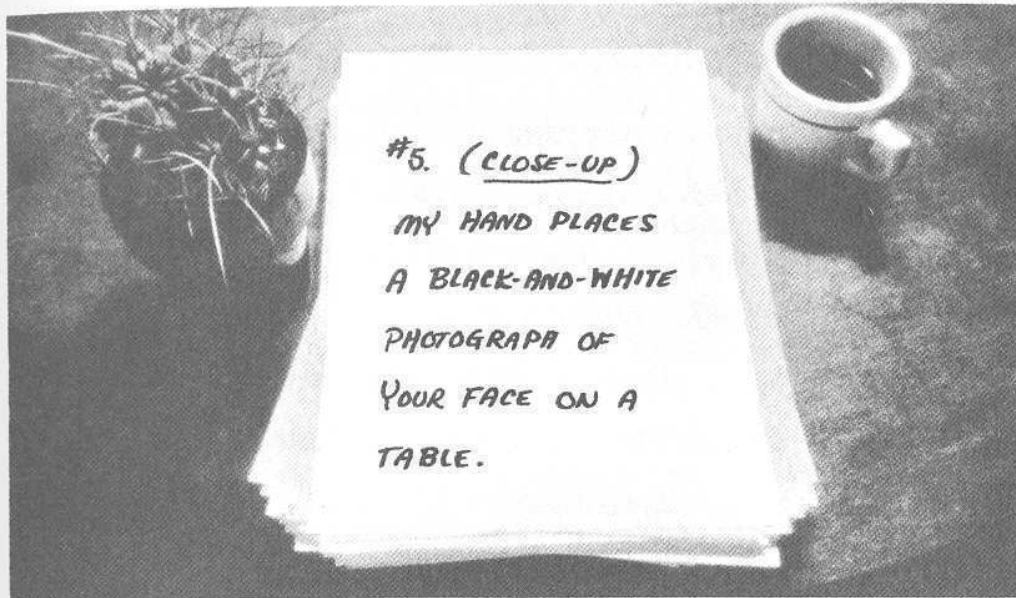 #5. (CLOSE-UP)
MY HAND PLACES
A BLACK-AND-WHITE
PHOTOGRAPH OF
YOUR FACE ON A
TABLE.